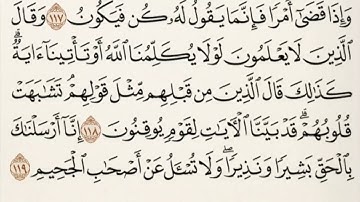 وَإِذَا قَضَىٰٓ أَمْرًا فَإِنَّمَا يَقُولُ لَهُۥ كُن فَيَكُونُ ١١٧ وَقَالَ
ٱلَّذِينَ لَا يَعْلَمُونَ لَوْلَا يُكَلِّمُنَا ٱللَّهُ أَوْ تَأْتِينَآ ءَايَةٌۗ
كَذَٰلِكَ قَالَ ٱلَّذِينَ مِن قَبْلِهِم مِّثْلَ قَوْلِهِمْۘ تَشَٰبَهَتْ
قُلُوبُهُمْۗ قَدْ بَيَّنَّا ٱلْءَايَٰتِ لِقَوْمٍ يُوقِنُونَ ١١٨ إِنَّآ أَرْسَلْنَٰكَ
بِٱلْحَقِّ بَشِيرًا وَنَذِيرًاۖ وَلَا تُسْـَٔلُ عَنْ أَصْحَٰبِ ٱلْجَحِيمِ ١١٩